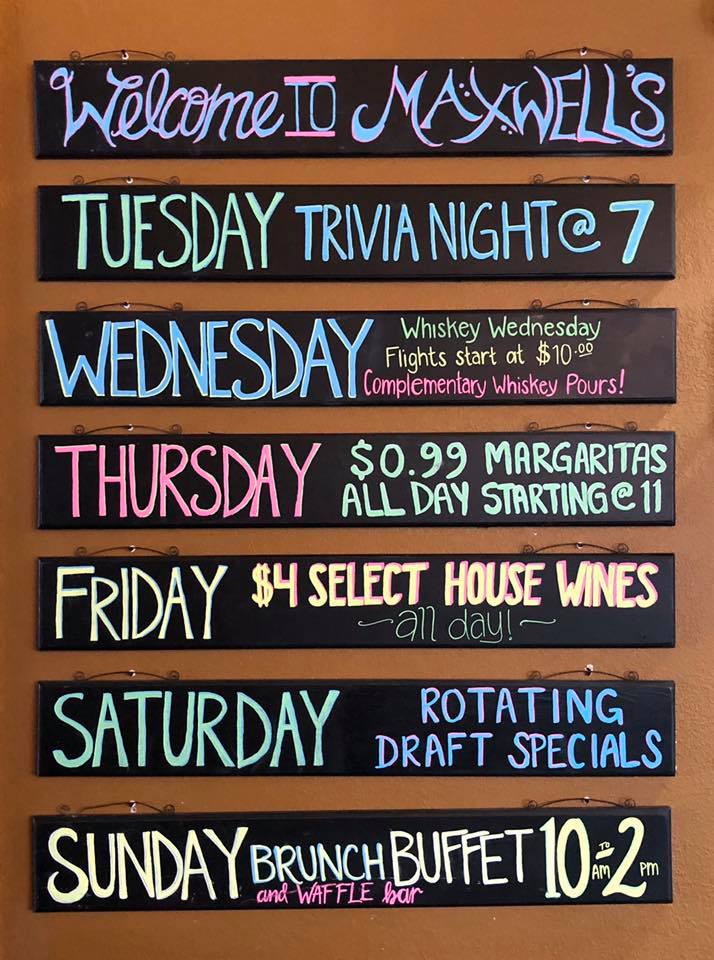 Welcome TO MAXWELL'S
TUESDAY TRIVIA NIGHT @ 7
WEDNESDAY
Whiskey Wednesday
Flights start at $10.00
Complementary Whiskey Pours!
THURSDAY
$0.99 MARGARITAS
ALL DAY STARTING @ 11
FRIDAY
$4 SELECT HOUSE WINES
~all day!~
SATURDAY
ROTATING
DRAFT SPECIALS
SUNDAY BRUNCH BUFFET 10 AM TO 2 PM
and WAFFLE bar